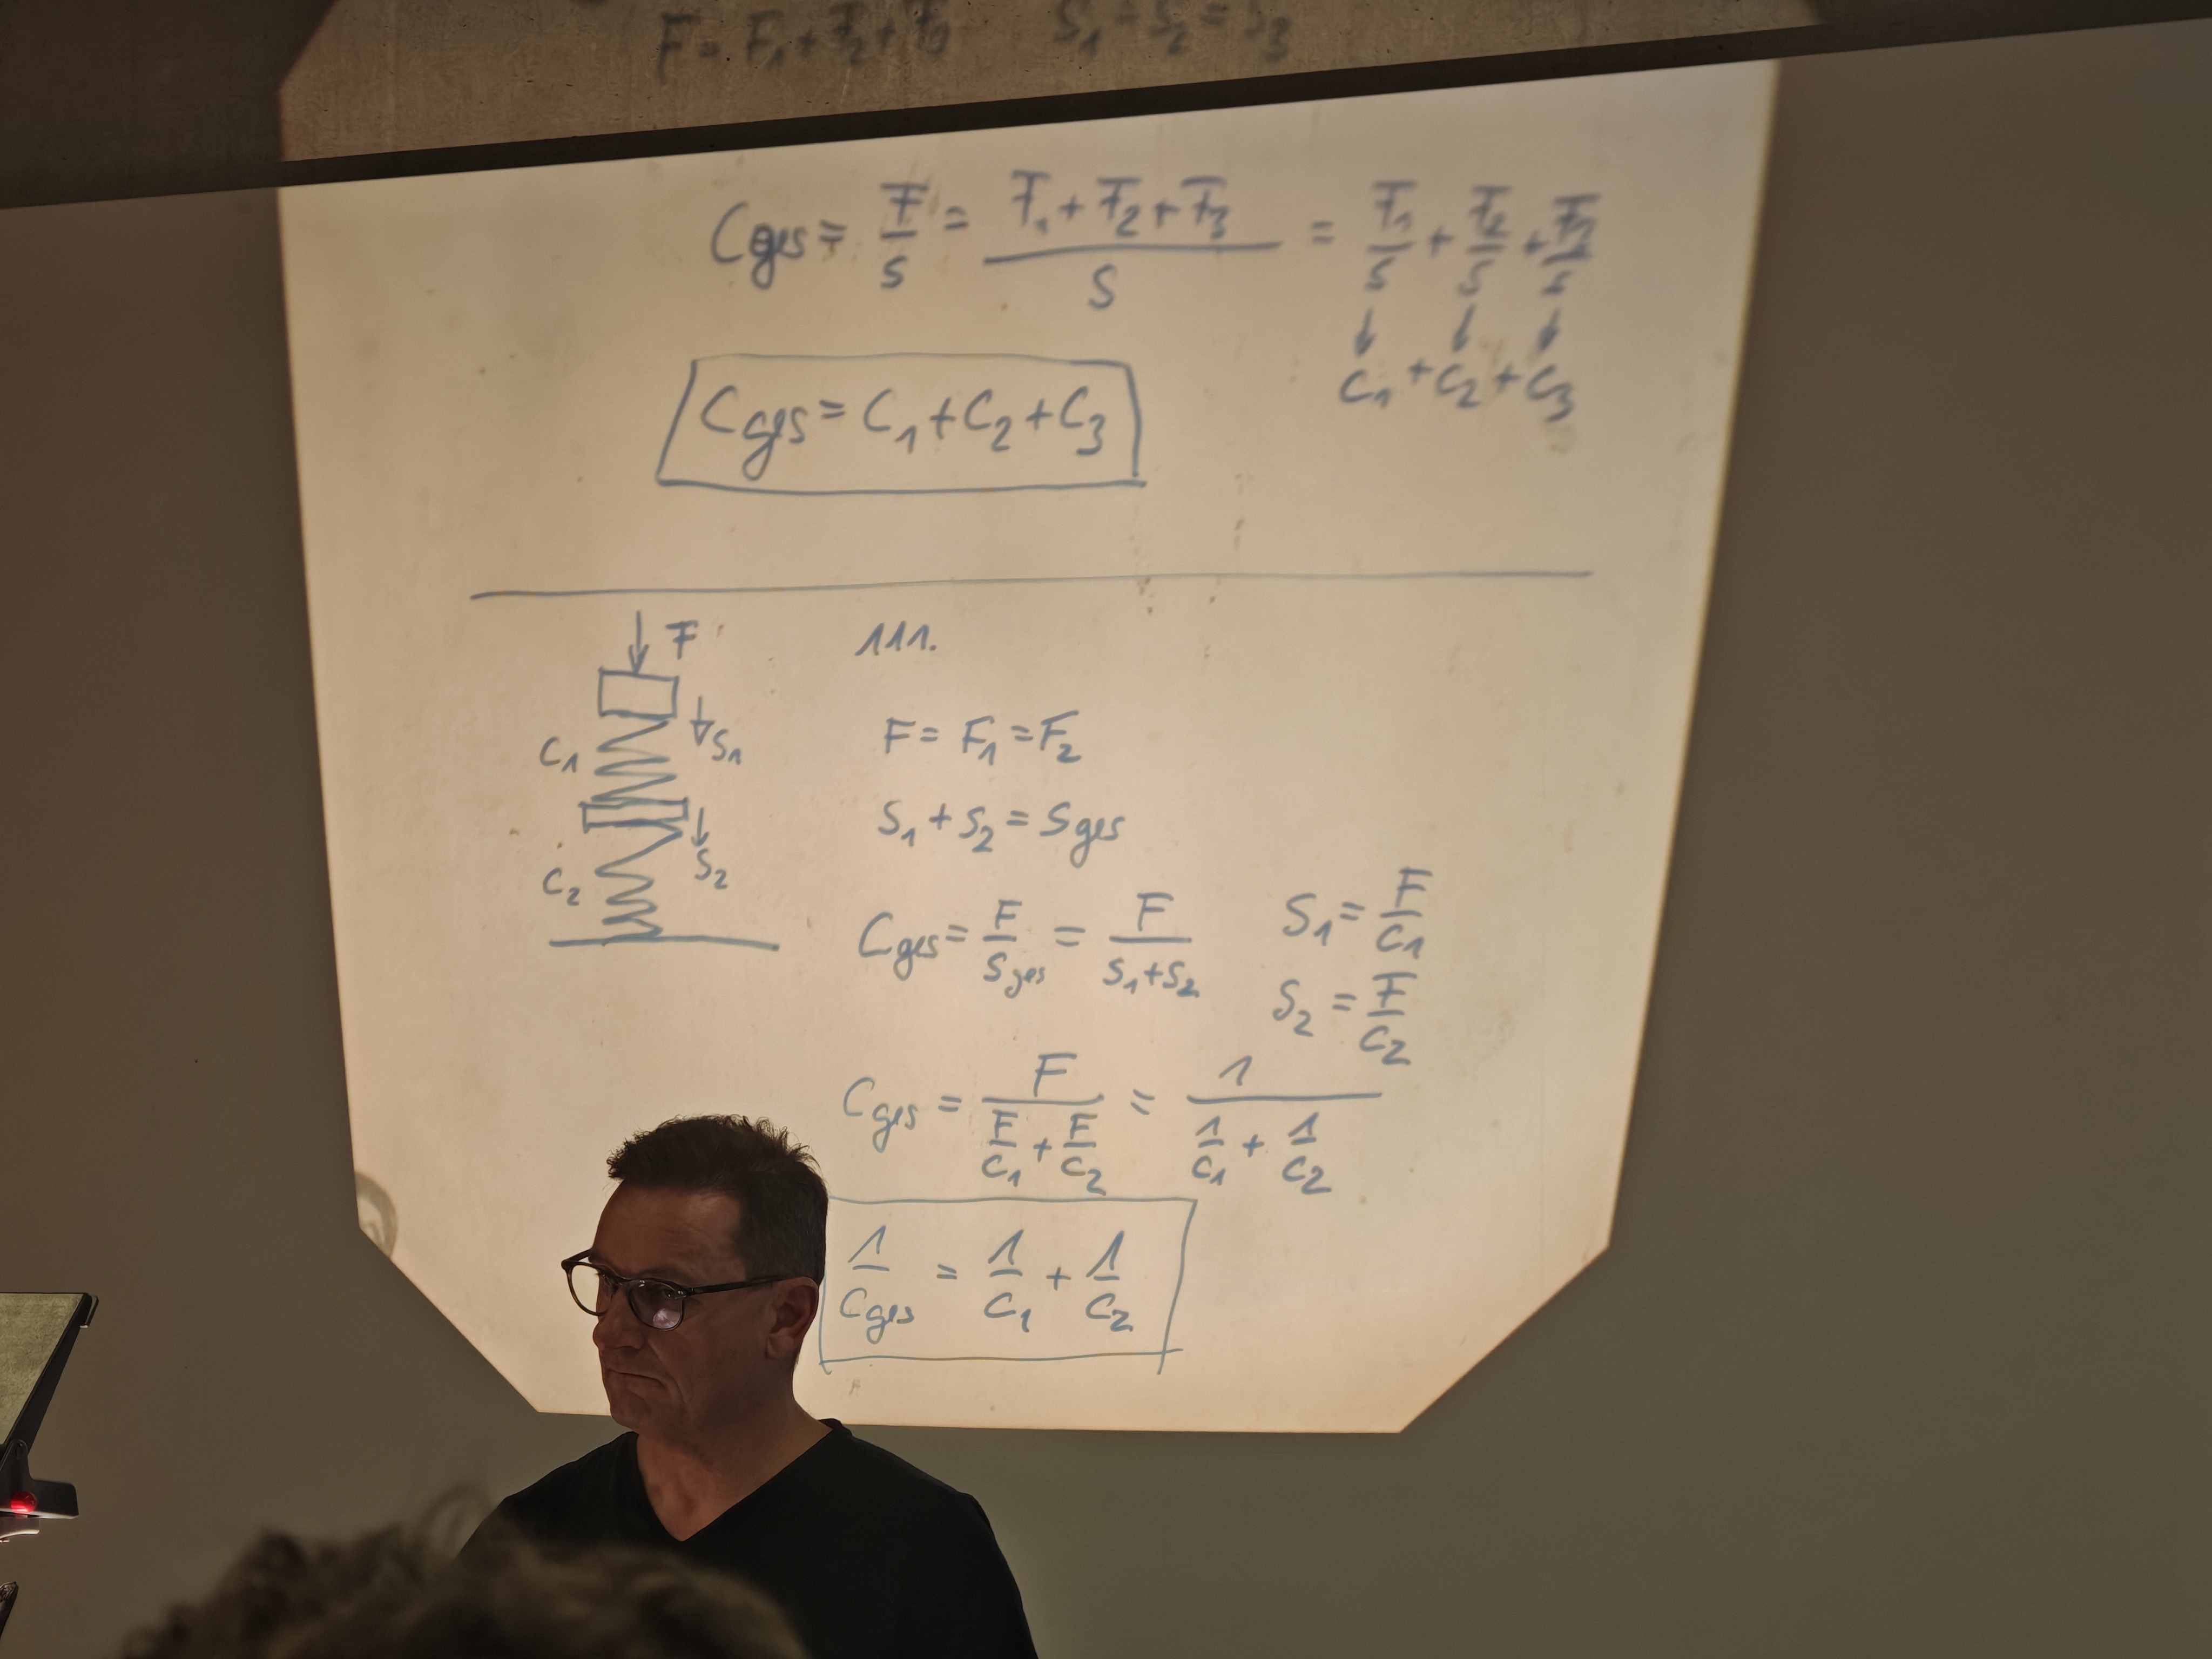 F = F₁ + F₂ + F₃ S₁ = S₂ = S₃
Cges = F/S = (F₁ + F₂ + F₃)/S = F₁/S + F₂/S + F₃/S
↓ ↓ ↓
C₁ + C₂ + C₃
Cges = C₁ + C₂ + C₃
F
111.
C₁
S₁
F = F₁ = F₂
S₂
C₂
S₁ + S₂ = Sges
Cges = F/Sges = F/(S₁ + S₂)
S₁ = F/C₁
S₂ = F/C₂
Cges = F/(F/C₁ + F/C₂) = 1/(1/C₁ + 1/C₂)
1/Cges = 1/C₁ + 1/C₂